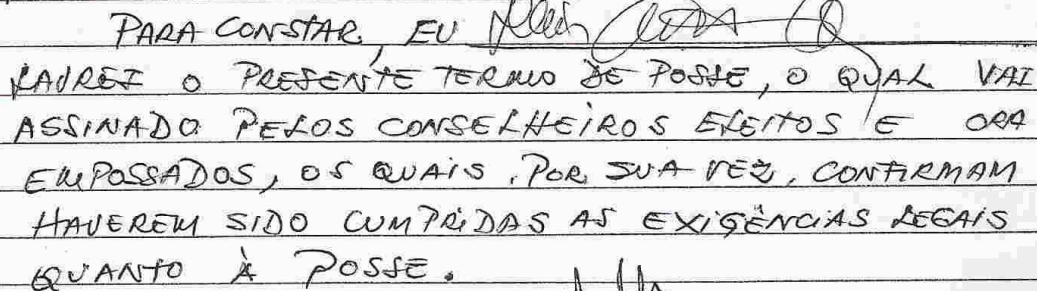 PARA CONSTAR, EU
LAVREI O PRESENTE TERMO DE POSSE, O QUAL VAI
ASSINADO PELOS CONSELHEIROS ELEITOS E ORA
EMPOSSADOS, OS QUAIS, POR SUA VEZ, CONFIRMAM
HAVEREM SIDO CUMPRIDAS AS EXIGÊNCIAS LEGAIS
QUANTO À POSSE.